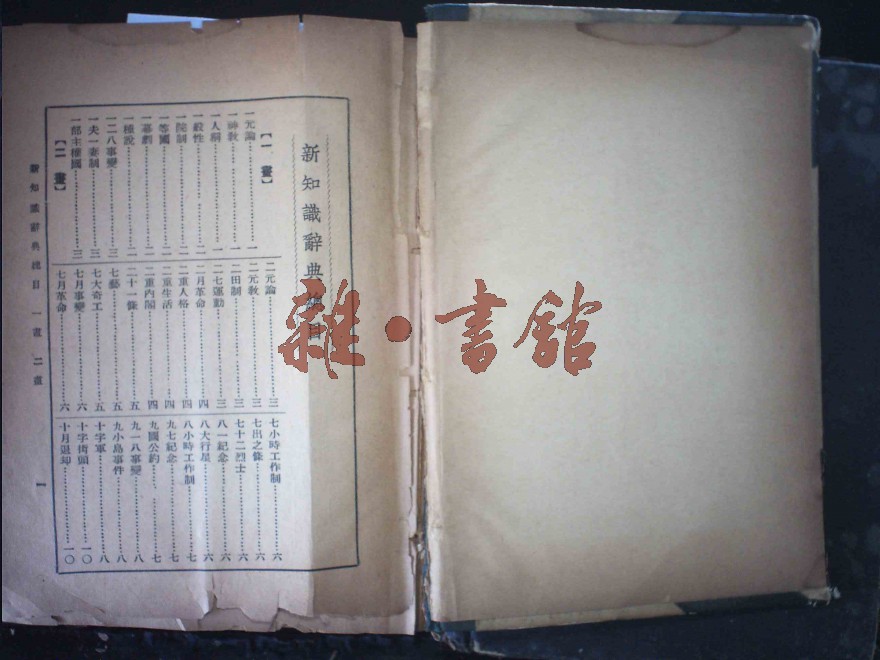 新知識辭典總目
【一畫】
一元論……一
一神教……一
一人稱……一
一般性……二
一院制……二
一等國……二
一幕劇……二
一二八事變……三
一夫一妻制……三
【二畫】
二元論……三
二元教……三
二田制……三
二七運動……三
二月革命……四
二重人格……四
二重生活……四
二重內閣……四
二十一條……五
七藝……五
七大奇工……五
七月事變……六
七月革命……六
七小時工作制……六
七出之條……六
七十二烈士……六
八一紀念……六
八大行星……六
八小時工作制……七
九七紀念……七
九國公約……七
九一八事變……八
九小島事件……八
十字軍……八
十字街頭……一〇
十月退却……一〇
新知識辭典總目 一畫 二畫
一
雜·書館